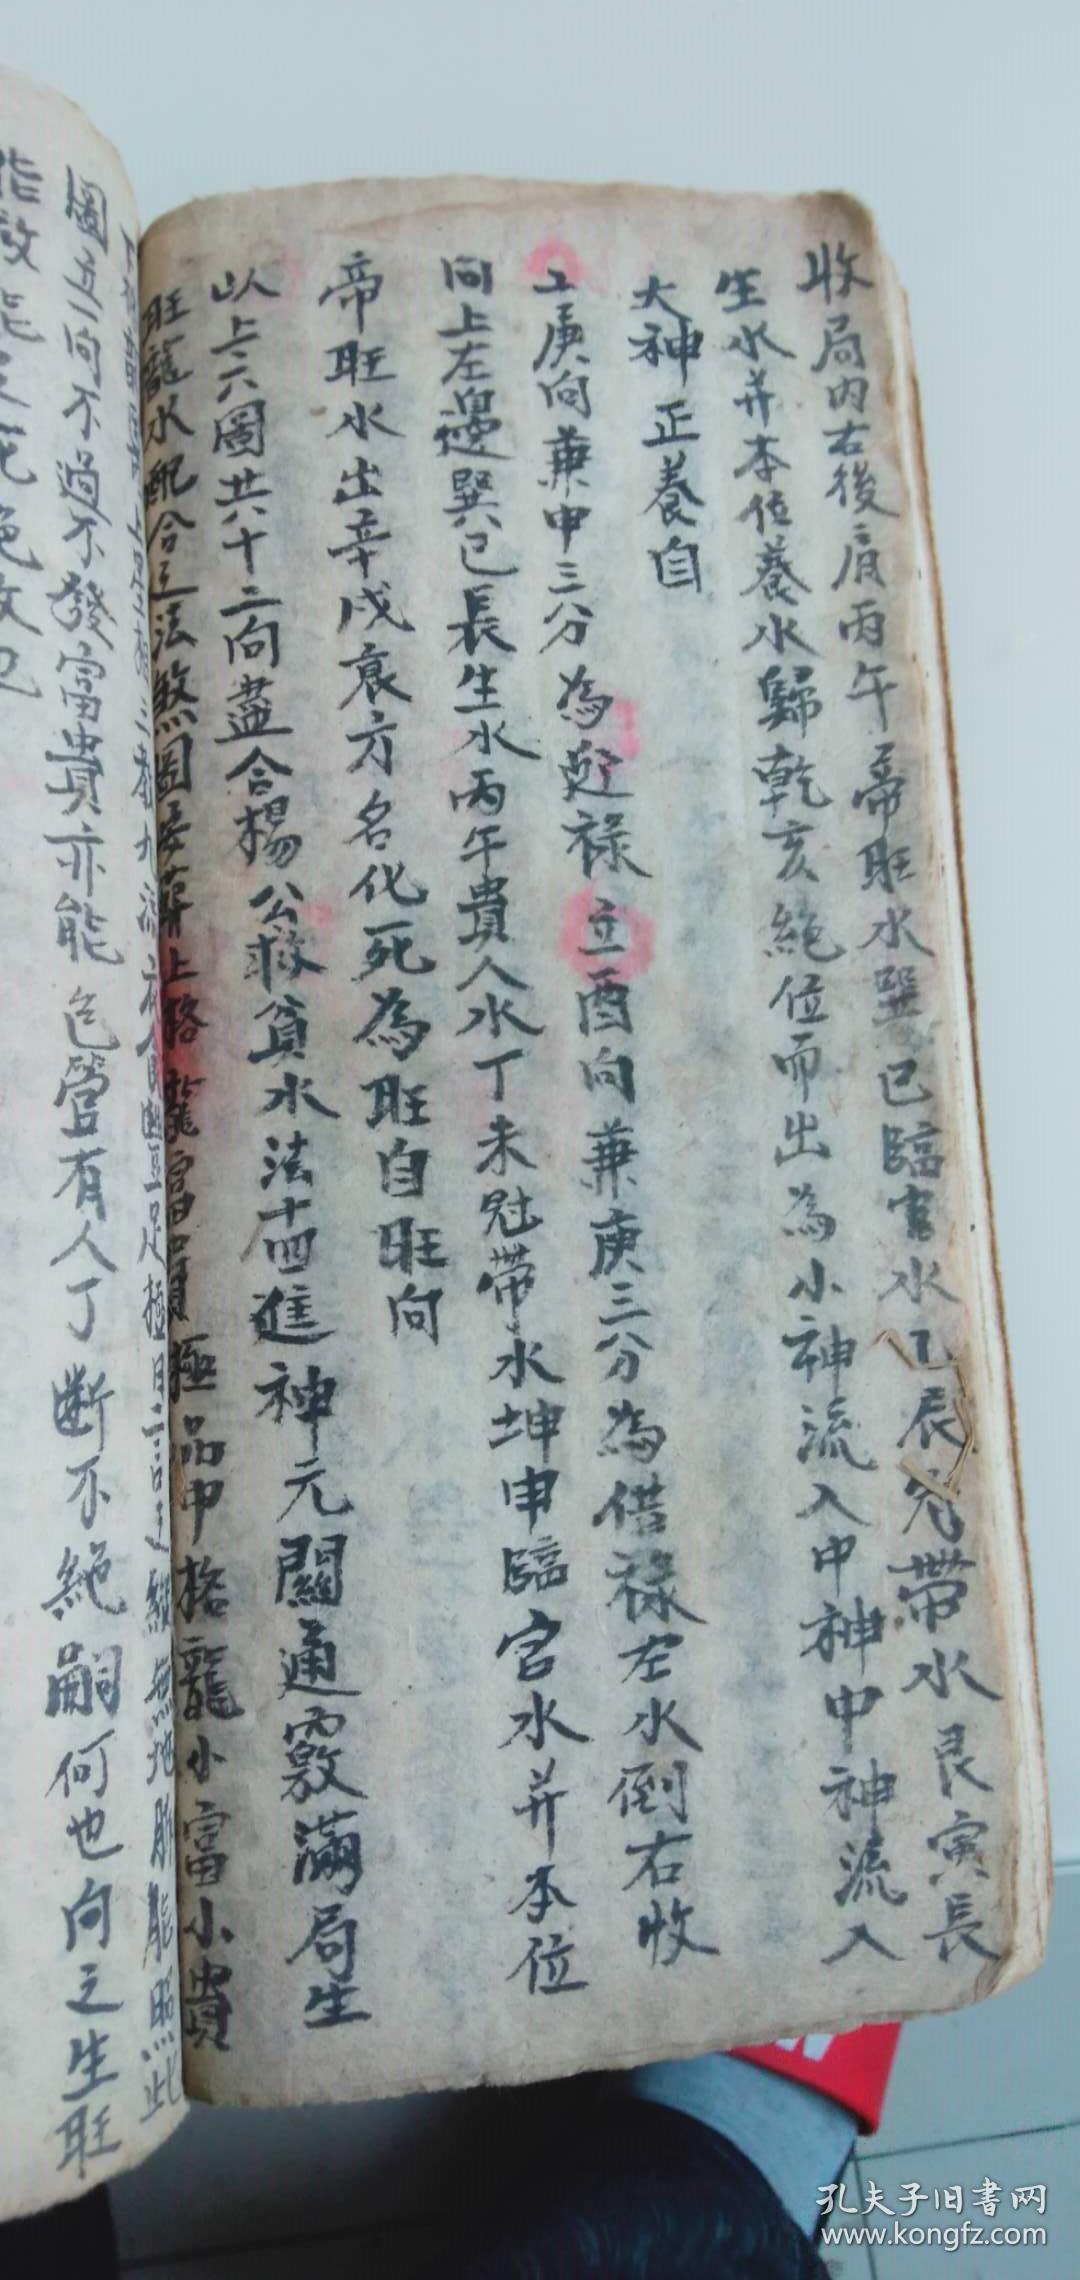 收局内右後肩丙午帝旺水巽巳臨官水乙辰冠帶水艮寅長
生水并本位養水歸乾亥絶位而出為小神流入中神中神流入
大神正養自
立庚向兼申三分為迎禄立酉向兼庚三分為借禄左水倒右收
向上左邊巽巳長生水丙午貴人水丁未冠帶水坤申臨官水并本位
帝旺水出辛戌衰方名化死為旺自旺向
以上六圖共十二向盡合楊公救貧水法十四進神元關通竅滿局生
旺龍水配合立法煞圖上格龍富貴極品中格龍小富小貴
無地能照此
圖立向不過不發富貴亦能包管有人丁断不絶嗣何也向之生旺
孔夫子旧書网
www.kongfz.com